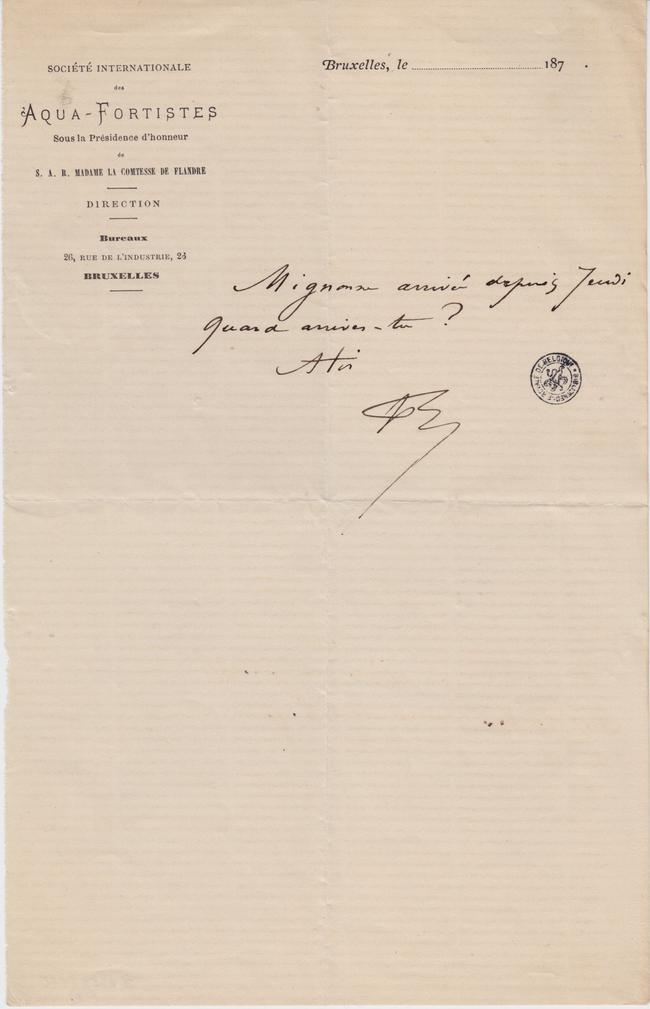 SOCIÉTÉ INTERNATIONALE
des
AQUA-FORTISTES
Sous la Présidence d'honneur
de
S. A. R. MADAME LA COMTESSE DE FLANDRE
DIRECTION
Bureaux
26, RUE DE L'INDUSTRIE, 24
BRUXELLES
Bruxelles, le 187 .
Mignonne arrivée depuis Jeudi
quand arrives-tu ?
A toi
BIBLIOTHÈQUE ROYALE DE BELGIQUE